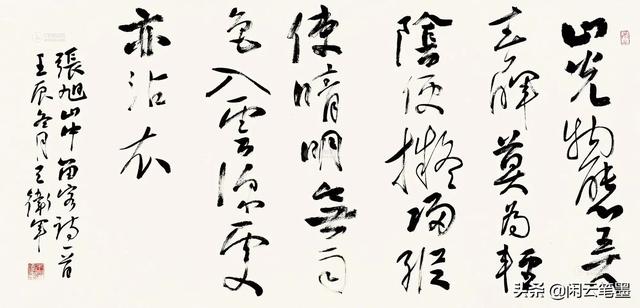 山光物態弄
春暉莫為輕
陰便擬歸縱
使晴明無雨
色入雲深處
亦沾衣
張旭山中留客詩一首
壬辰冬月王衛軍
头条 @闲云笔墨